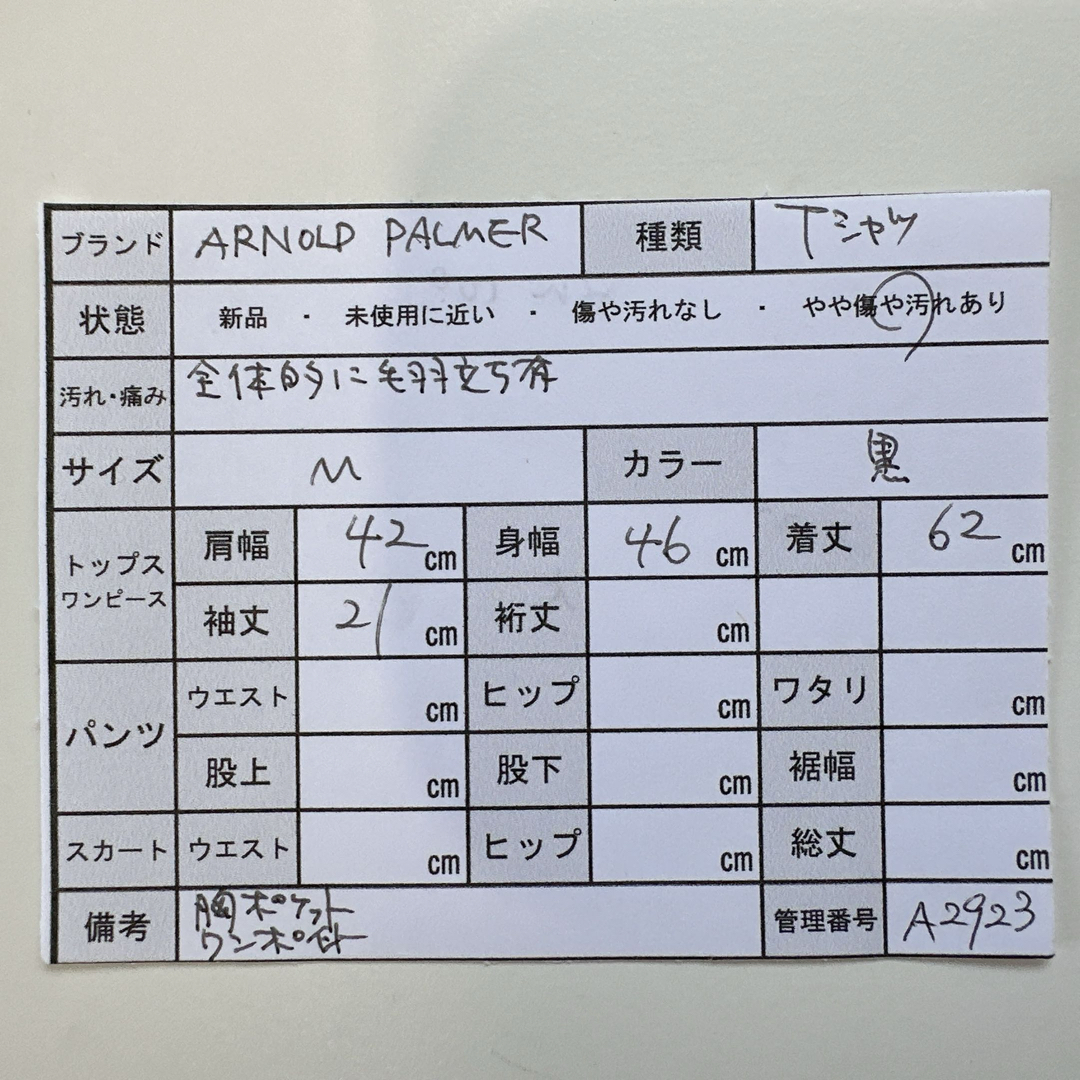 ブランド ARNOLD PALMER 種類 Tシャツ
状態 新品 ・ 未使用に近い ・ 傷や汚れなし ・ やや傷や汚れあり
汚れ・痛み 全体的に毛羽立ち有
サイズ M カラー 黒
トップス
ワンピース
肩幅 42 cm 身幅 46 cm 着丈 62 cm
袖丈 21 cm 裄丈 cm
パンツ
ウエスト cm ヒップ cm ワタリ cm
股上 cm 股下 cm 裾幅 cm
スカート ウエスト cm ヒップ cm 総丈 cm
備考 胸ポケット
ワンポイント
管理番号 A2923